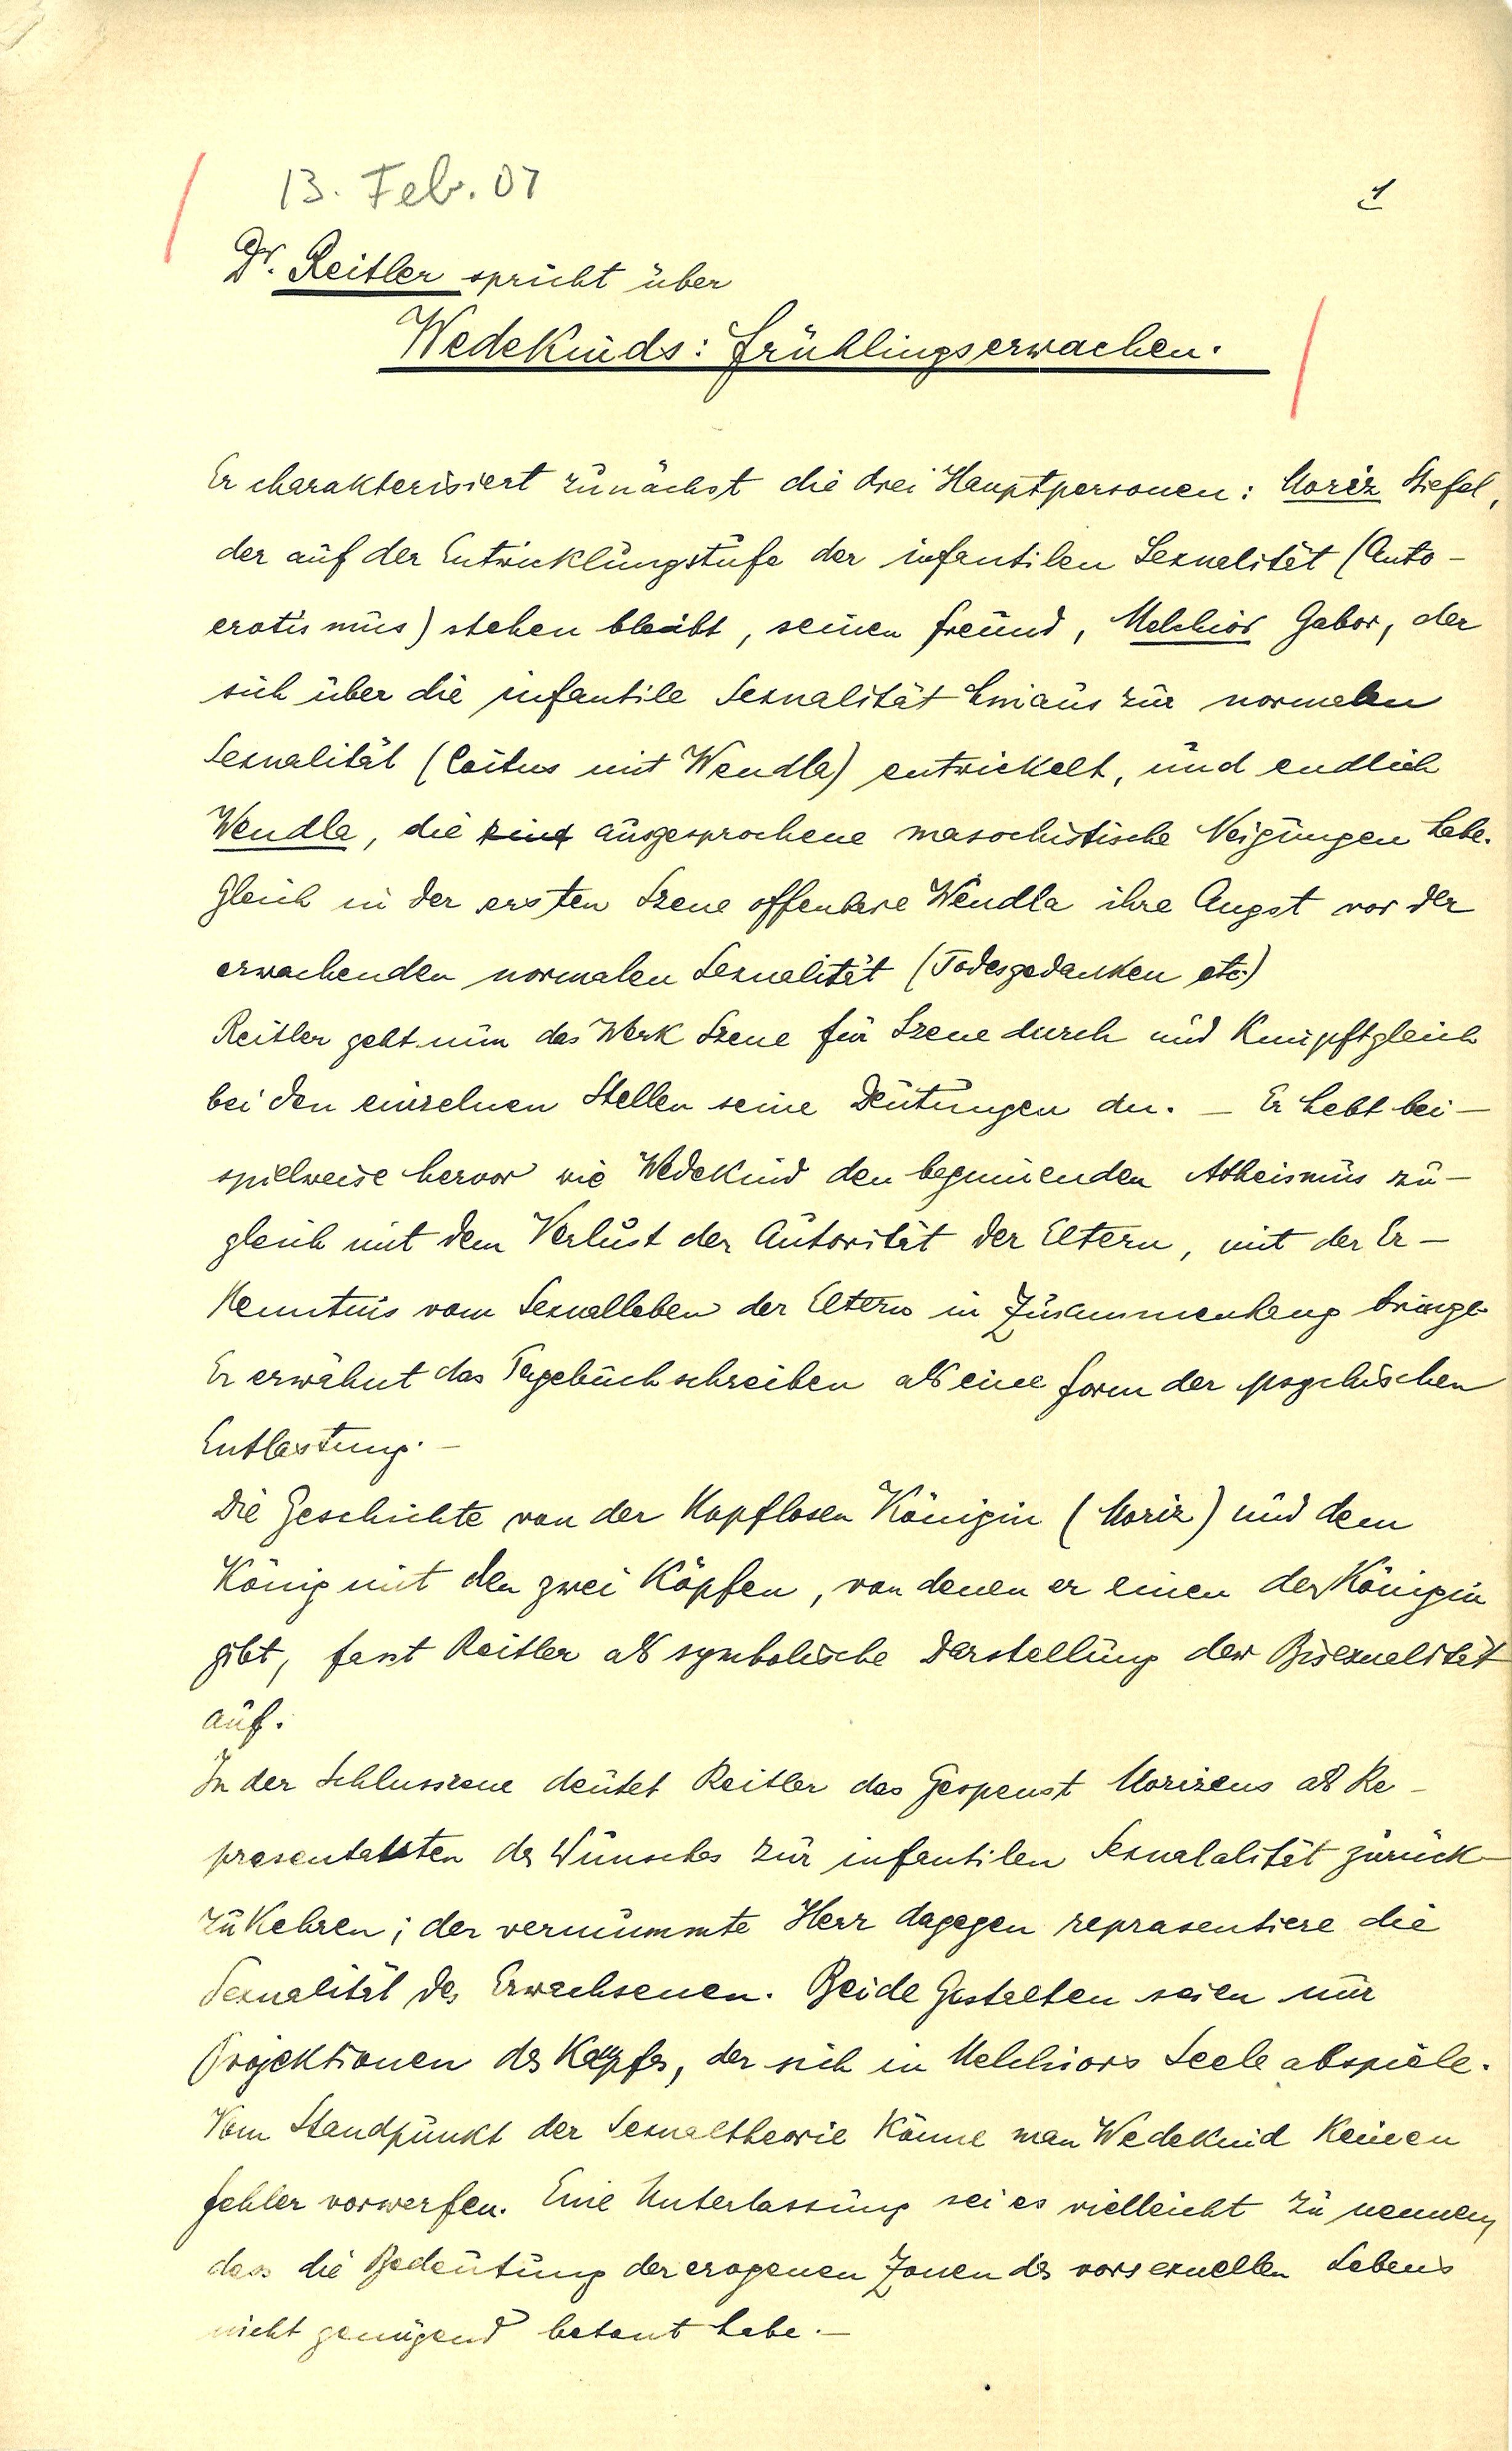 13. Feb. 07
1
Dr. Reitler spricht über
Wedekinds: Frühlingserwachen.
Er charakterisiert zunächst die drei Hauptpersonen: Moriz Stiefel,
der auf der Entwicklungstufe der infantilen Sexualität (Auto-
erotismus) stehen bleibt, seinen Freund, Melchior Gabor, der
sich über die infantile Sexualität hinaus zur normalen
Sexualität (Coitus mit Wendla) entwickelt, und endlich
Wendla, die ausgesprochene masochistische Neigungen habe.
Gleich in der ersten Szene offenbare Wendla ihre Angst vor der
erwachenden normalen Sexualität (Todesgedanken etc.)
Reitler geht nun das Werk Szene für Szene durch und knüpft gleich
bei den einzelnen Stellen seine Deutungen an. — Er hebt bei-
spielweise hervor wie Wedekind den beginnenden Atheismus zu-
gleich mit dem Verlust der Autorität der Eltern, mit der Er-
kenntnis vom Sexualleben der Eltern in Zusammenhang bringe.
Er erwähnt das Tagebuchschreiben als eine Form der psychischen
Entlastung. —
Die Geschichte von der kopflosen Königin (Moriz) und dem
König mit den zwei Köpfen, von denen er einen der Königin
gibt, fasst Reitler als symbolische Darstellung der Bisexualität
auf.
In der Schlusszene deutet Reitler das Gespenst Morizens als Re-
präsentanten des Wunsches zur infantilen Sexualalität zurück-
zukehren; der vermummte Herr dagegen repräsentiere die
Sexualität des Erwachsenen. Beide Gestalten seien nur
Projektionen des Kampfes, der sich in Melchiors Seele abspiele.
Vom Standpunkt der Sexualtheorie könne man Wedekind keinen
Fehler vorwerfen. Eine Unterlassung sei es vielleicht zu nennen,
dass die Bedeutung der erogenen Zonen des vorsexuellen Lebens
nicht genügend betont habe. —